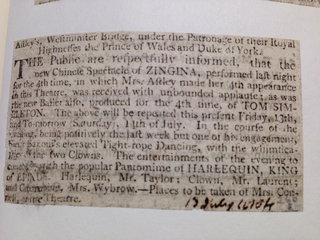 Astley's, Westminster Bridge, under the Patronage of their Royal
Highnesses the Prince of Wales and Duke of York.
THE Public are respectfully informed, that the
new Chinese Spectacle of ZINGINA, performed last night
for the 4th time, in which Mrs. Astley made her 4th appearance
in this Theatre, was received with unbounded applause; as was
the new Ballet also, produced for the 4th time, of TOM SIM-
PLETON. The above will be repeated this present Friday, 13th,
and to-morrow Saturday, 14th of July. In the course of the
evening, being positively the last week but one of his engagement,
elevated Tight-rope Dancing, with the whimsica-
the two Clowns. The entertainments of the evening to
with the popular Pantomime of HARLEQUIN, KING
of Harlequin, Mr. Taylor; Clown, Mr. Laurent;
and Mrs. Wybrow.—Places to be taken of Mrs. Con-
Theatre.
13 July 1804